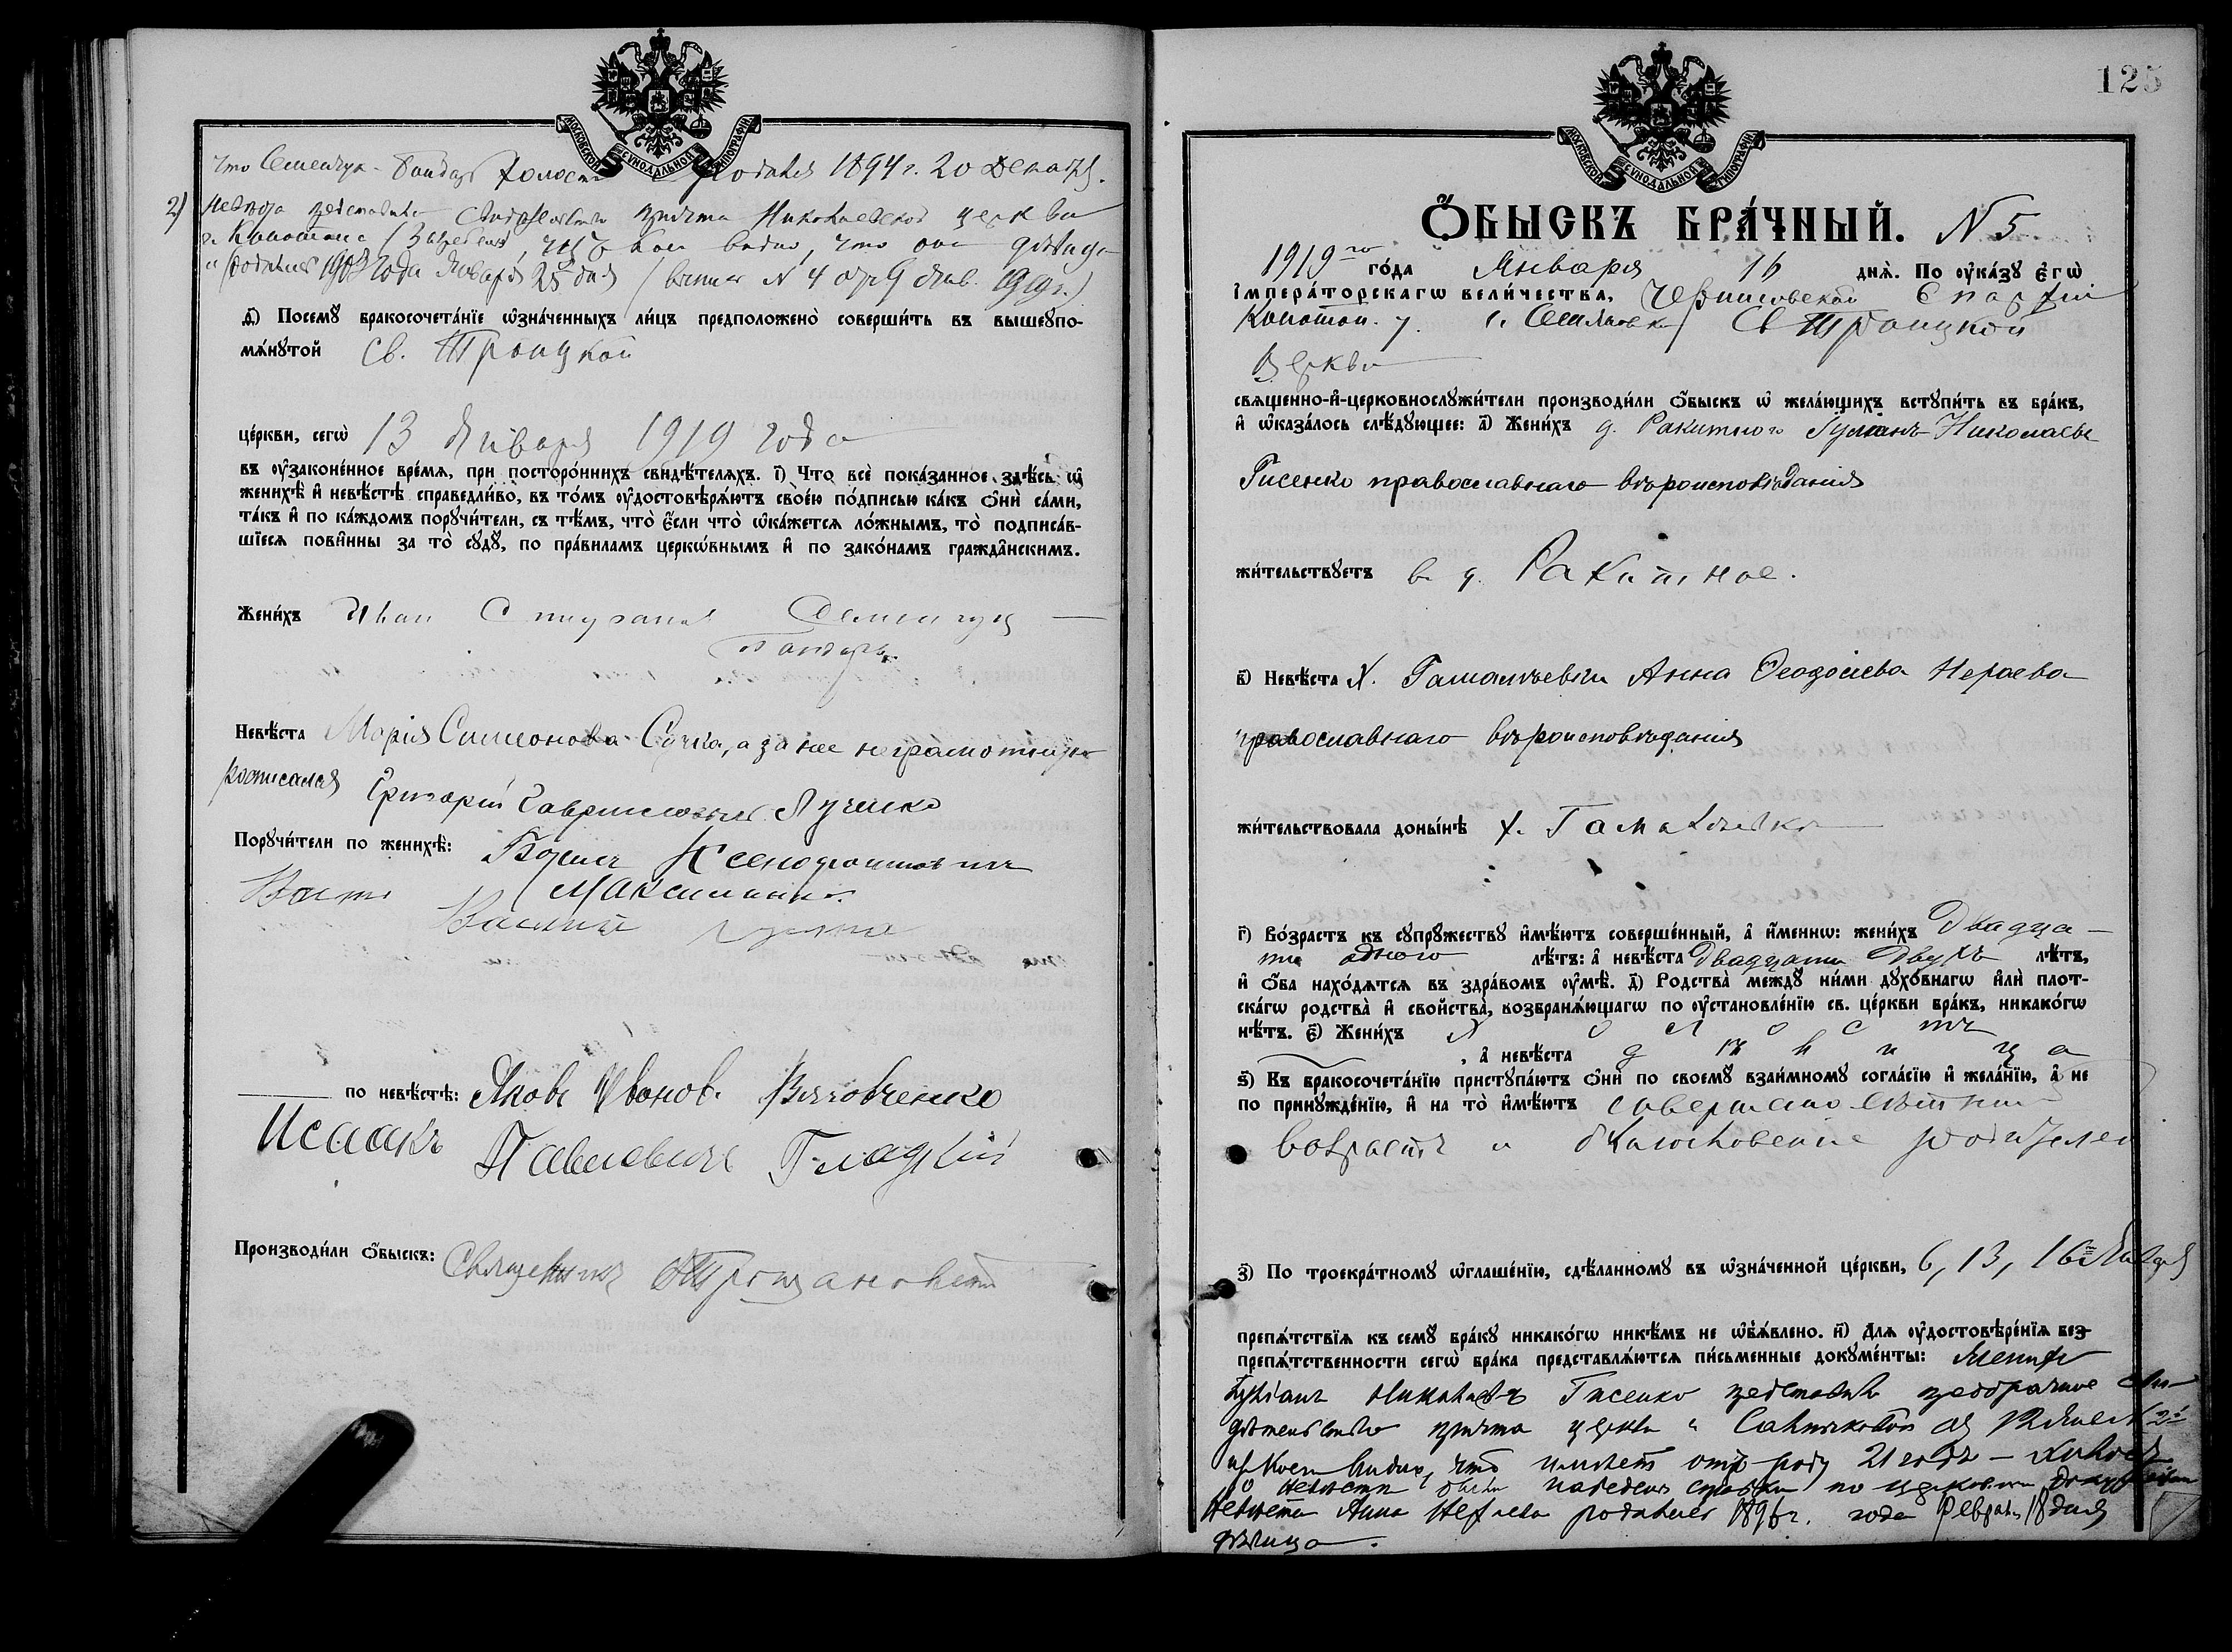 МОСКОВСКОЙ СѴНОДАЛЬНОЙ ТИПОГРАФІИ
что Семенчук - Бандур холост родился 1894 г. 20 Декабря.
2) Невеста представила свидетельство причта Николаевской церкви
г. Конотопа видно, что она девица
и родилась года Января 25 дня № 4 1919 г.)
д҃) Посемꙋ бракосочета́нїе ѡ҆зна́ченныхъ ли́цъ предположено̀ соверши́ть въ вышеꙋпо-
мѧ́нꙋтой Св. Троицкой
це́ркви, сегѡ̀ 13 Января 1919 года
въ ᲂу҆зако́ненное вре́мѧ, при посторо́ннихъ свидѣ́телѧхъ. і҃) Что̀ всѐ пока́занное здѣ́сь ѡ҆
женихѣ̀ и҆ невѣ́стѣ справедли́во, въ то́мъ ᲂу҆достовѣрѧ́ютъ свое́ю по́дписью ка́къ ѻ҆нѝ са́ми,
та́къ и҆ по ка́ждомъ порꙋчи́тели, съ тѣ́мъ, что̀ є҆́сли что̀ ѡ҆ка́жетсѧ ло́жнымъ, то̀ подписа́в-
шїесѧ пови́нны за то̀ сꙋдꙋ̀, по пра́виламъ церкѡ́внымъ и҆ по зако́намъ гражда́нскимъ.
Жени́хъ Иван Семенчук
Бандуръ
Невѣ́ста Марія Симонова Сучка, а за нее неграмотную
росписался Григорій Гавриловичъ Луценко
Порꙋчи́тели по женихѣ̀: Ксенофонтовичъ
Максименко
Василий
по невѣ́стѣ: Яковъ Ивонов. Вязовченко
Исаакъ Павловичъ Гладкій
Производи́ли ѻ҆́быскъ: Священникъ
125
МОСКОВСКОЙ СѴНОДАЛЬНОЙ ТИПОГРАФІИ
Ѻ҆́БЫСКЪ БРА́ЧНЫЙ. № 5
1919го го́да Января 16 днѧ̀. По ᲂу҆ка́зꙋ є҆гѡ̀
і҆мпера́торскагѡ вели́чества, Черниговской Епархіи
Конотоп. у. с. Семяновки Св Троицкой
Церкви
свѧще́нно-и҆-церковнослꙋжи́тели производи́ли ѻ҆́быскъ ѡ҆ жела́ющихъ встꙋпи́ть въ бра́къ,
и҆ ѡ҆каза́лось слѣ́дꙋющее: а҃) Жени́хъ д. Ракитного Іуліанъ Николаевъ
Гисенко православнаго вѣроисповѣданія
жи́тельствꙋетъ в д. Ракитное.
в҃) Невѣ́ста х. Гамалѣевки Анна Ѳеодосіева Нераева
православнаго вѣроисповѣданія
жи́тельствовала доны́нѣ х. Гамалѣевка
г҃) Во́зрастъ къ сꙋпрꙋ́жествꙋ и҆мѣ́ютъ соверше́нный, а҆ и҆́меннѡ: жени́хъ двадца-
ти одного лѣ́тъ: а҆ невѣ́ста двадцати двухъ лѣ́тъ,
и҆ ѻ҆́ба нахо́дѧтсѧ въ здра́вомъ ᲂу҆мѣ̀. д҃) Родства̀ междꙋ̀ ни́ми дꙋхо́внагѡ и҆лѝ плот-
ска́гѡ родства̀ и҆ свойства̀, возбранѧ́ющагѡ по ᲂу҆становле́нїю св. це́ркви бра́къ, никако́гѡ
нѣ́тъ. є҃) Жени́хъ холостъ
, а҆ невѣ́ста дѣвица
ѕ҃) Къ бракосочета́нїю пристꙋпа́ютъ ѻ҆нѝ по своемꙋ̀ взаи́мномꙋ согла́сїю и҆ жела́нїю, а҆ не
по принꙋжде́нїю, и҆ на то̀ и҆мѣ́ютъ совершеннолѣтній
возрастъ и благословеніе родителей
з҃) По троекра́тномꙋ ѡ҆глаше́нїю, сдѣ́ланномꙋ въ ѡ҆зна́ченной це́ркви, 6, 13, 16 Января
препѧ́тствїѧ къ семꙋ̀ бра́кꙋ никако́гѡ никѣ́мъ не ѡ҆б̾ѧ́влено. и҃) Длѧ ᲂу҆достовѣре́нїѧ без-
препѧ́тственности сегѡ̀ бра́ка представлѧ́ютсѧ пи́сьменные докꙋме́нты: Жених
Іуліанъ Николаевъ Гисенко представилъ предбрачное сви-
дѣтельство причта церкви
из коего видно, что имѣетъ отъ роду 21 годъ - холостъ
о невѣстѣ были наведены справки по церковным документам
Невѣста Анна Нераева родилась 1896 г. года Февраля 18 дня
дѣвица.